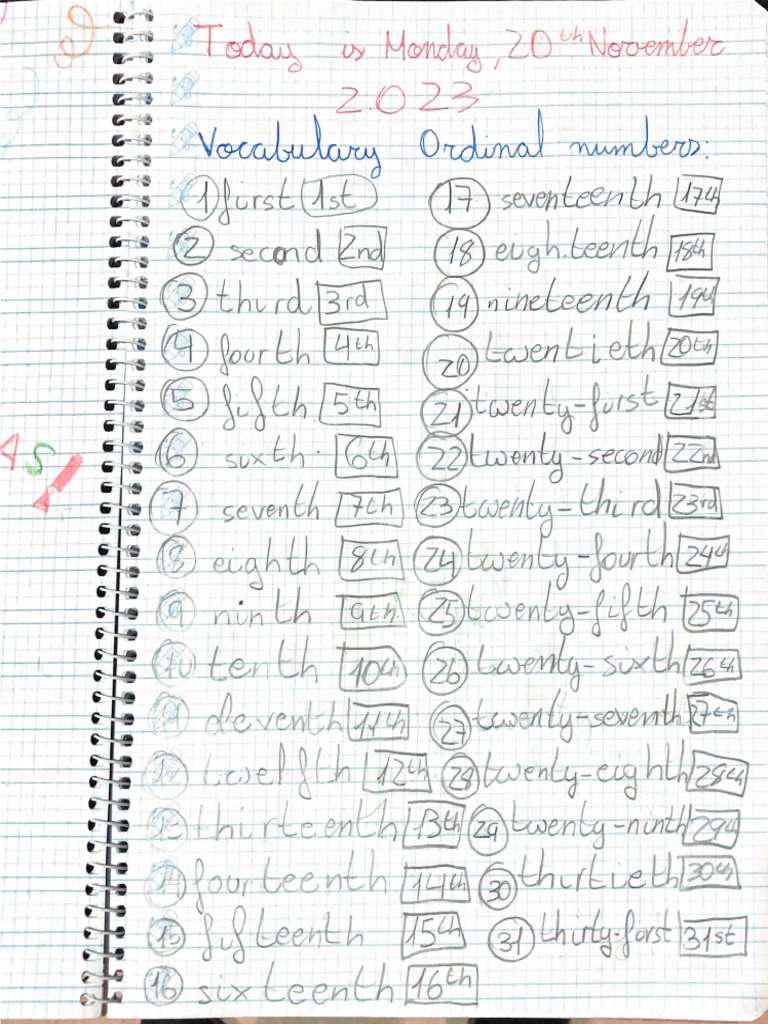 Today is Monday, 20th November
2023
Vocabulary Ordinal numbers:
1 first 1st
2 second 2nd
3 third 3rd
4 fourth 4th
5 fifth 5th
6 sixth 6th
7 seventh 7th
8 eighth 8th
9 ninth 9th
10 tenth 10th
11 eleventh 11th
12 twelfth 12th
13 thirteenth 13th
14 fourteenth 14th
15 fifteenth 15th
16 sixteenth 16th
17 seventeenth 17th
18 eighteenth 18th
19 nineteenth 19th
20 twentieth 20th
21 twenty-first 21st
22 twenty-second 22nd
23 twenty-third 23rd
24 twenty-fourth 24th
25 twenty-fifth 25th
26 twenty-sixth 26th
27 twenty-seventh 27th
28 twenty-eighth 28th
29 twenty-ninth 29th
30 thirtieth 30th
31 thirty-first 31st